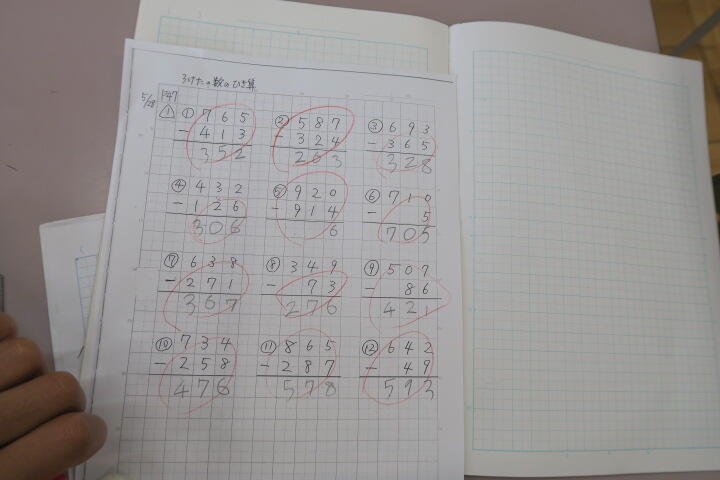 3けたの数のひき算
5/28 P47
1 ① 765 ② 587 ③ 693
-413 -324 -365
352 263 328
④ 432 ⑤ 920 ⑥ 710
-126 -914 - 5
306 6 705
⑦ 638 ⑧ 349 ⑨ 507
-271 - 73 - 86
367 276 421
⑩ 734 ⑪ 865 ⑫ 642
-258 -287 - 49
476 578 593